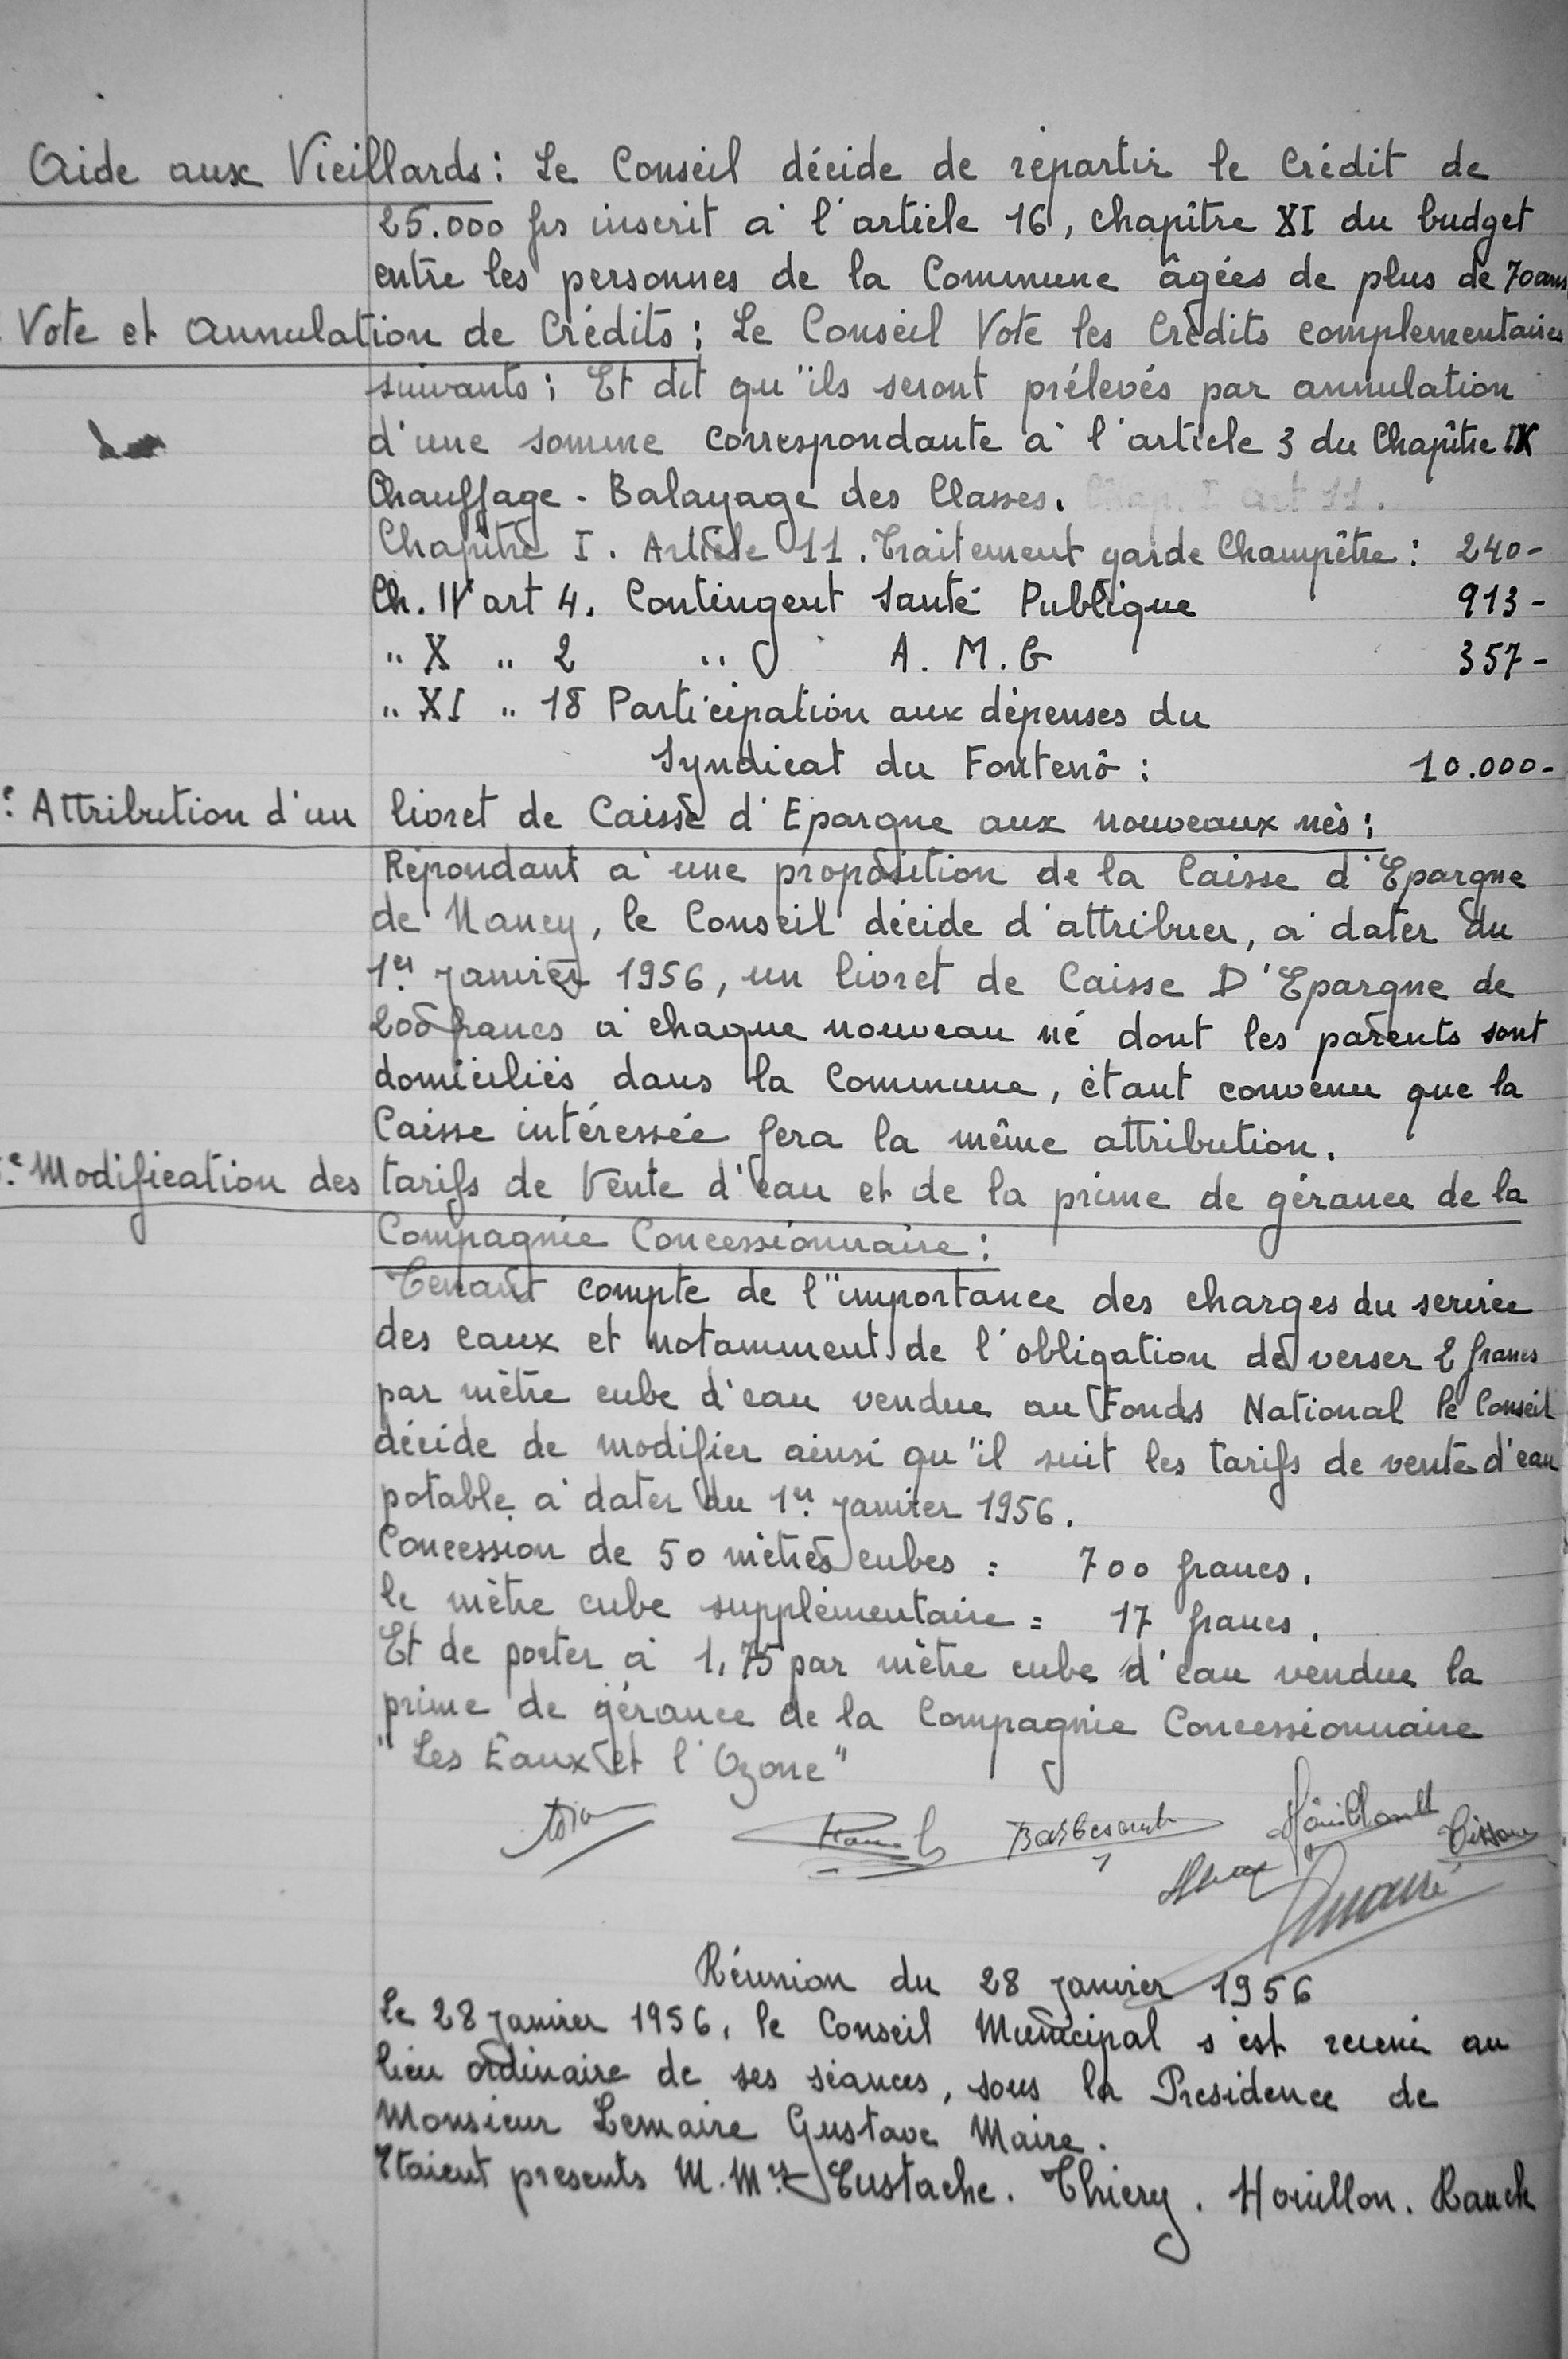 Aide aux Vieillards : Le Conseil décide de répartir le Crédit de
25.000 frs inscrit à l'article 16, chapître XI du budget
entre les personnes de la Commune âgées de plus de 70 ans
Vote et Annulation de Crédits : Le Conseil Vote les Crédits complementaires
suivants ; Et dit qu'ils seront prélevés par annulation
d'une somme correspondante à l'article 3 du Chapître IX
Chauffage - Balayage des Classes. Chap. I art 11.
Chapître I. Article 11. Traitement garde Champêtre : 240-
Ch. IV art 4. Contingent Santé Publique 913-
" X " 2 " A. M. G 357-
" XI " 18 Participation aux dépenses du
Syndicat du Fontenô : 10.000-
Attribution d'un livret de Caisse d'Epargne aux nouveaux nés :
Répondant à une proposition de la Caisse d'Epargne
de Nancy, le Conseil décide d'attribuer, à dater du
1er janvier 1956, un livret de Caisse D'Epargne de
200 francs à chaque nouveau né dont les parents sont
domiciliés dans la Commune, étant convenu que la
Caisse intéressée fera la même attribution.
Modification des tarifs de Vente d'eau et de la prime de gérance de la
Compagnie Concessionnaire :
Tenant compte de l'importance des charges du service
des eaux et notamment de l'obligation de verser 2 francs
par mètre cube d'eau vendue au Fonds National le Conseil
décide de modifier ainsi qu'il suit les tarifs de vente d'eau
potable à dater du 1er janvier 1956.
Concession de 50 mètres cubes = 700 francs.
le mètre cube supplémentaire = 17 francs.
Et de porter à 1,75 par mètre cube d'eau vendue la
prime de gérance de la Compagnie Concessionnaire
"Les Eaux et l'Ozone"
Réunion du 28 janvier 1956
Le 28 janvier 1956, le Conseil Municipal s'est reuni au
lieu ordinaire de ses séances, sous la Presidence de
Monsieur Lemaire Gustave Maire.
Etaient presents M. Mrs Eustache. Thiery. Houillon. Rauch